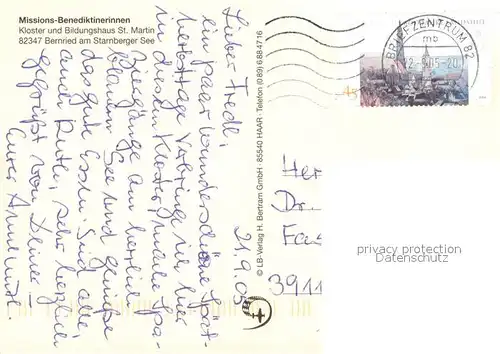 Missions-Benediktinerinnen
Kloster und Bildungshaus St. Martin
82347 Bernried am Starnberger See
21.9.05
Lieber Fredl,
ein paar wunderschöne Spät-
herbsttage verbringe ich hier
in diesem Kloster, mache Spa-
ziergänge am herrlich
blauen See und genieße
das gute Essen. Seid alle,
auch Ruth, sehr herzlich
gegrüßt von Deiner
Eurer
© LB-Verlag H. Bertram GmbH · 85540 HAAR · Telefon (0 89) 6 88 47 16
BRIEFZENTRUM 82
mb
05-20
Her
Dr.
391
privacy protection
Datenschutz